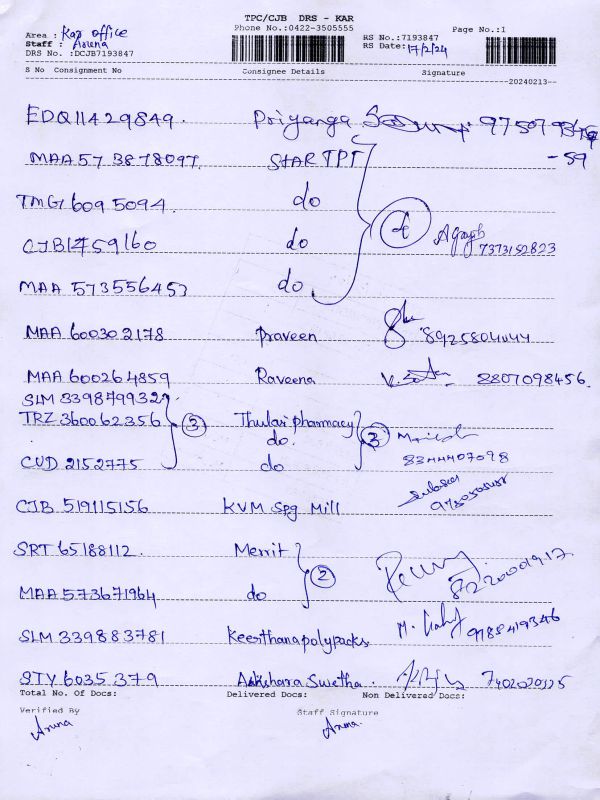 TPC/CJB DRS - KAR
Phone No.:0422-3505555
Page No.:1
Area : Kar office
Staff : Aruna
DRS No. :DCJB7193847
RS No.:7193847
RS Date: 17/2/24
S No Consignment No Consignee Details Signature
20240213
EDQ11429849. Priyanga
MAA 573878097. STAR TPT - 59
TMG 6095094. do
CJB1459160 do 7373152823
MAA 573556453 do
MAA 600302178 Praveen 8925804044
MAA 600264859 Raveena 8807098456.
SLM 339849932
TRZ 360062356 3 Thulasi pharmacy 3
do.
CUD 2152775 do 8344407098
CJB 519115156 KVM Spg Mill
SRT 65188112. Merrit 2
MAA 573671964 do 8220001917.
SLM 339883781 Keerthanapolypacks 9188419346
STY 6035379 Aakshara Swetha.
Total No. Of Docs: Delivered Docs: Non Delivered Docs:
Verified By Staff Signature
Aruna Aruna